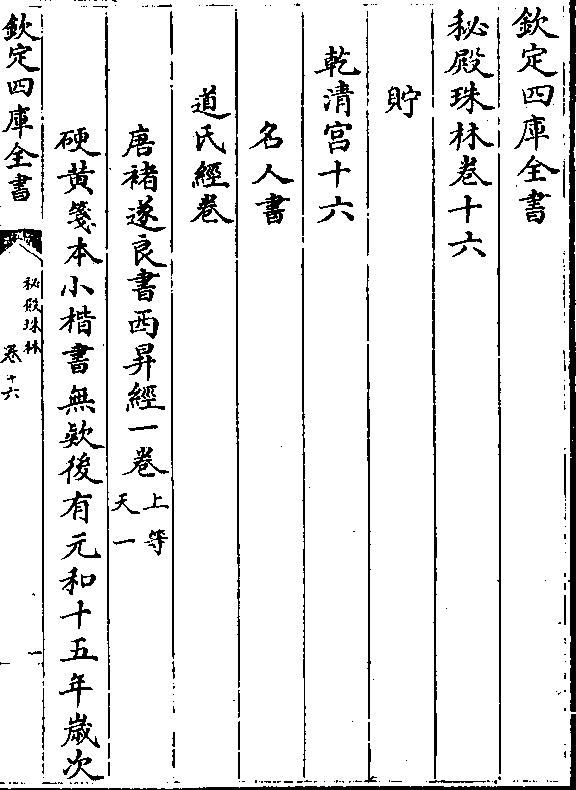 欽定四庫全書
秘殿珠林卷十六
貯
乾清宫十六
名人書
道氏經卷
唐褚遂良書西昇經一卷上等天一
硬黃箋本小楷書無欵後有元和十五年歲次
欽定四庫全書
秘殿珠林
卷十六
一